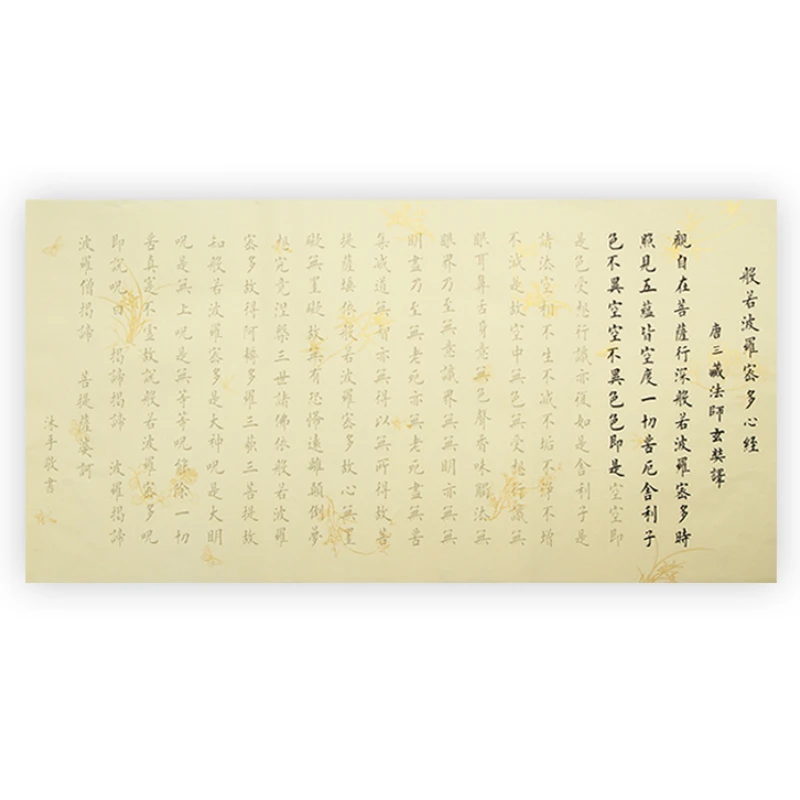 般若波羅密多心經
唐三藏法師玄奘譯
觀自在菩薩行深般若波羅密多時
照見五蘊皆空度一切苦厄舍利子
色不異空空不異色色即是空空即
是色受想行識亦復如是舍利子是
諸法空相不生不滅不垢不淨不增
不減是故空中無色無受想行識無
眼耳鼻舌身意無色聲香味觸法無
眼界乃至無意識界無無明亦無無
明盡乃至無老死亦無老死盡無苦
集滅道無智亦無得以無所得故菩
提薩埵依般若波羅密多故心無罣
礙無罣礙故無有恐怖遠離顛倒夢
想究竟涅槃三世諸佛依般若波羅
密多故得阿耨多羅三藐三菩提故
知般若波羅密多是大神呪是大明
呪是無上呪是無等等呪能除一切
苦真實不虛故說般若波羅密多呪
即說呪曰 揭諦揭諦 波羅揭諦
波羅僧揭諦 菩提薩婆訶
沐手敬書